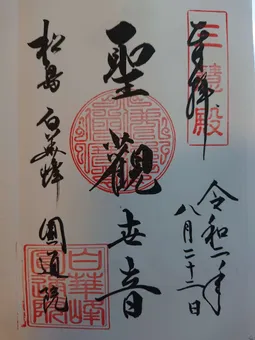 奉拝
三慧殿
令和二年
八月二十二日
聖觀世音
松島 白華峰 圓通院
白華峰
圓通院